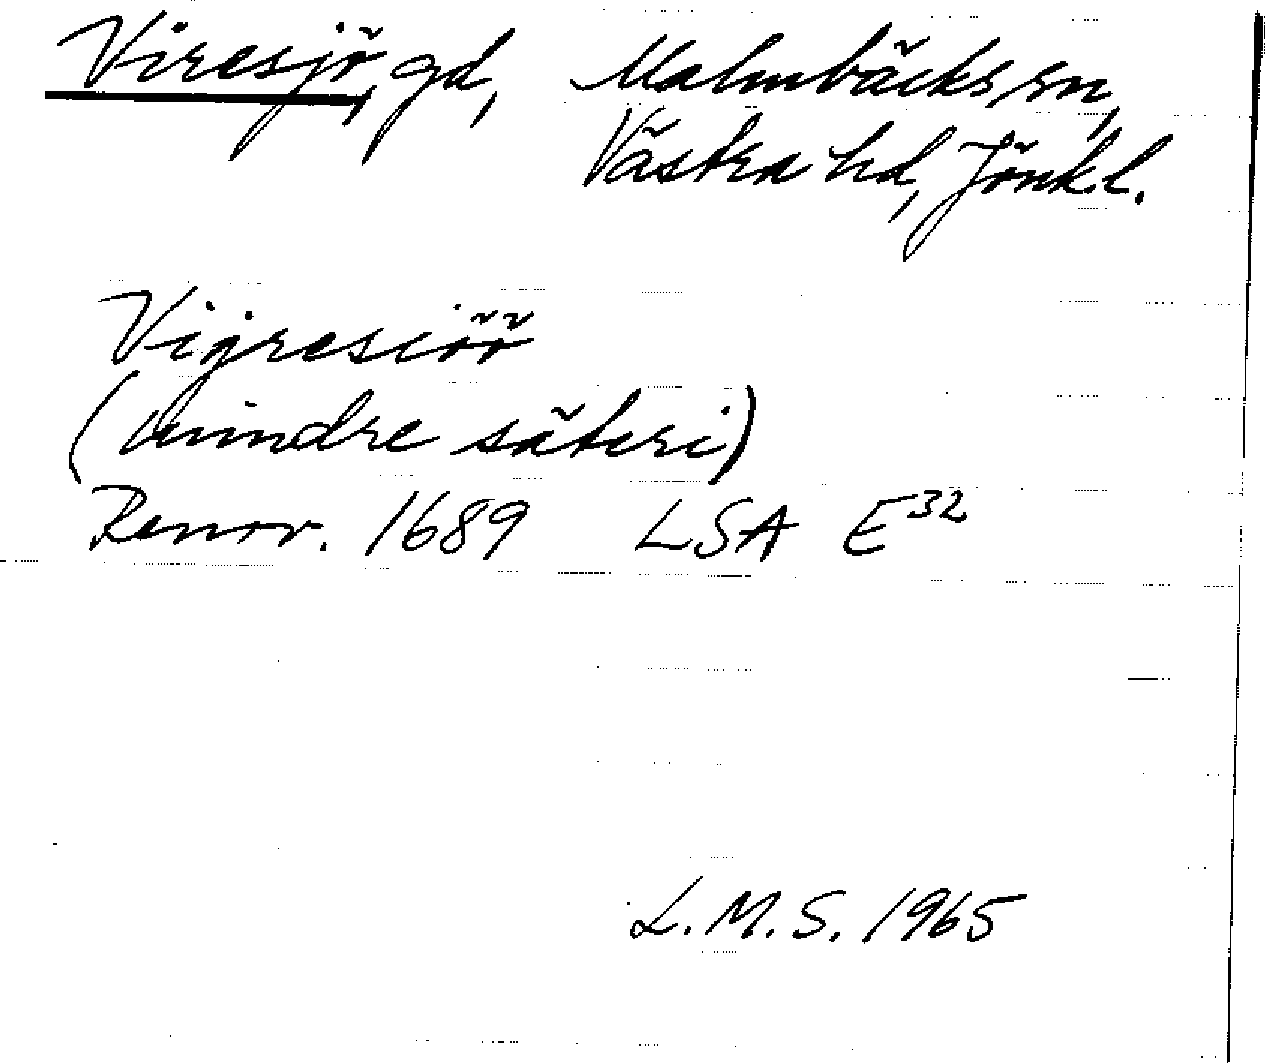 Viresjö, gd, Malmbäcks sn,
Västra hd, Jönk.l.
Vigresiöö
(mindre säteri)
Renov. 1689 LSA E32
L.M.S. 1965